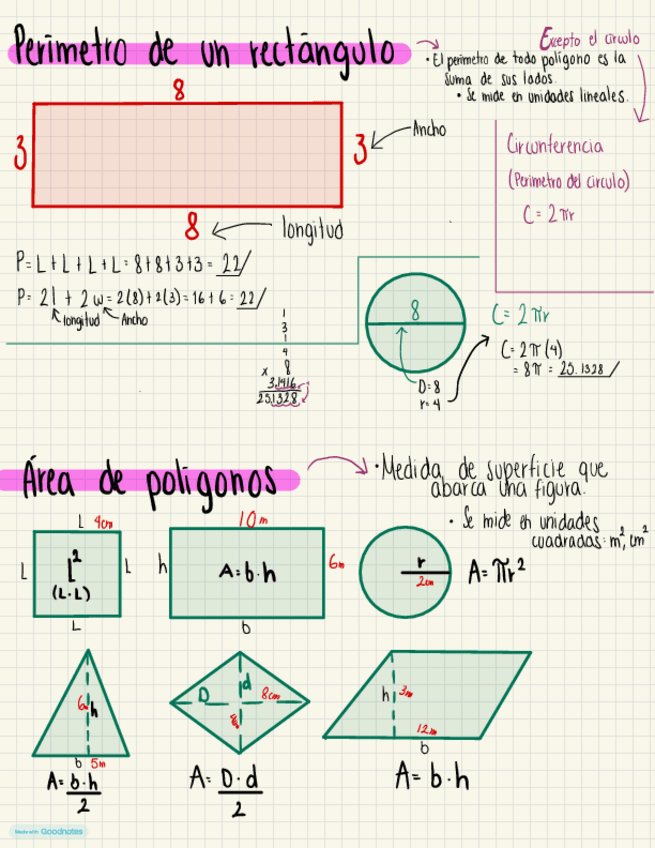 Perímetro de un rectángulo
Excepto el círculo
• El perímetro de todo polígono es la
suma de sus lados.
• Se mide en unidades lineales.
8
3
3
Ancho
8
longitud
Circunferencia
(Perímetro del circulo)
C = 2πr
P = L + L + L + L = 8+8+3+3 = 22/
P = 2l + 2w = 2(8)+2(3) = 16 + 6 = 22/
longitud
Ancho
1
3
1
4
8
x 3.1416
25.1328
8
D=8
r=4
C= 2πr
C= 2π(4)
= 8π = 25.1328/
Área de polígonos
• Medida de superficie que
abarca una figura.
• Se mide en unidades
cuadradas: m², cm²
L 4cm
L
L²
(L·L)
L
L
10m
h
A=b·h
6m
b
r
2cm
A=πr²
6
h
b 5m
A= b·h
2
D
d
8cm
A= D·d
2
h
3m
12m
b
A= b·h
Made with Goodnotes